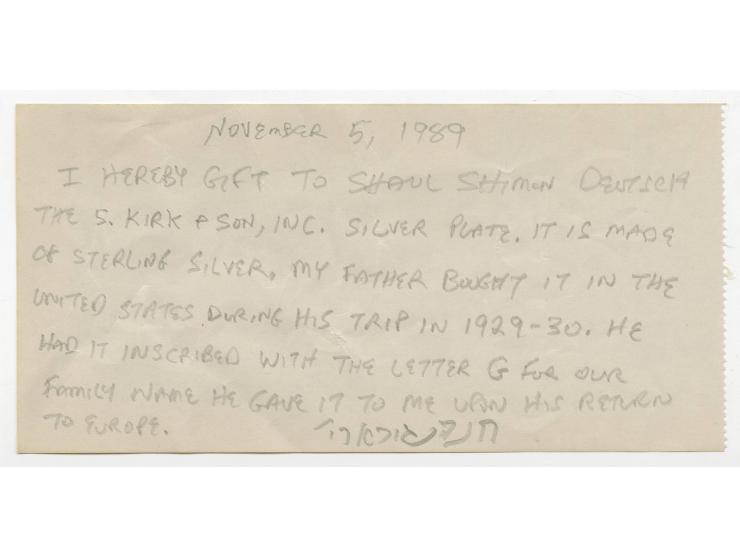 NOVEMBER 5, 1989
I HEREBY GIFT TO SHAUL SHIMON DEUTSCH
THE S. KIRK & SON, INC. SILVER PLATE. IT IS MADE
OF STERLING SILVER. MY FATHER BOUGHT IT IN THE
UNITED STATES DURING HIS TRIP IN 1929-30. HE
HAD IT INSCRIBED WITH THE LETTER G FOR OUR
FAMILY NAME HE GAVE IT TO ME UPON HIS RETURN
TO EUROPE.
חנה גוראריי